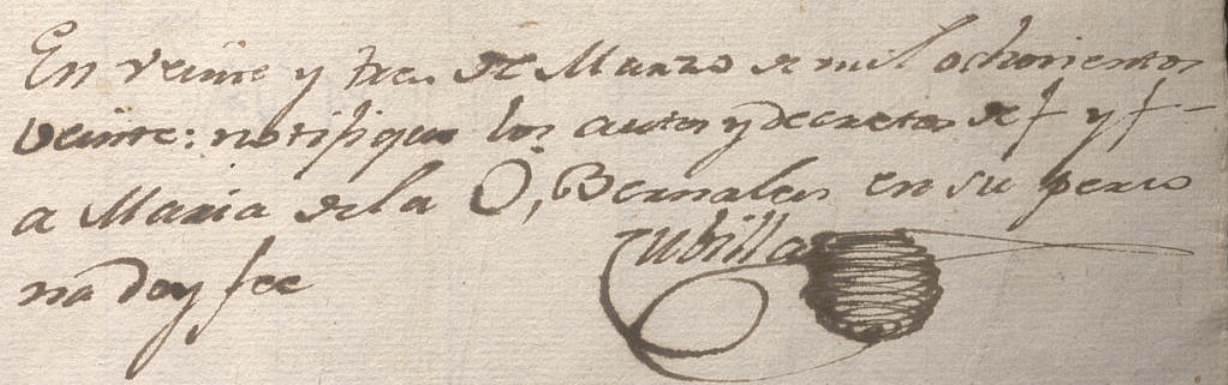 En veinte y tres de Marzo de mil ochosientos
veinte: notifique los autos y decretos de f y f
a Maria de la O, Bernales en su perso
na doy fee
Cubillas